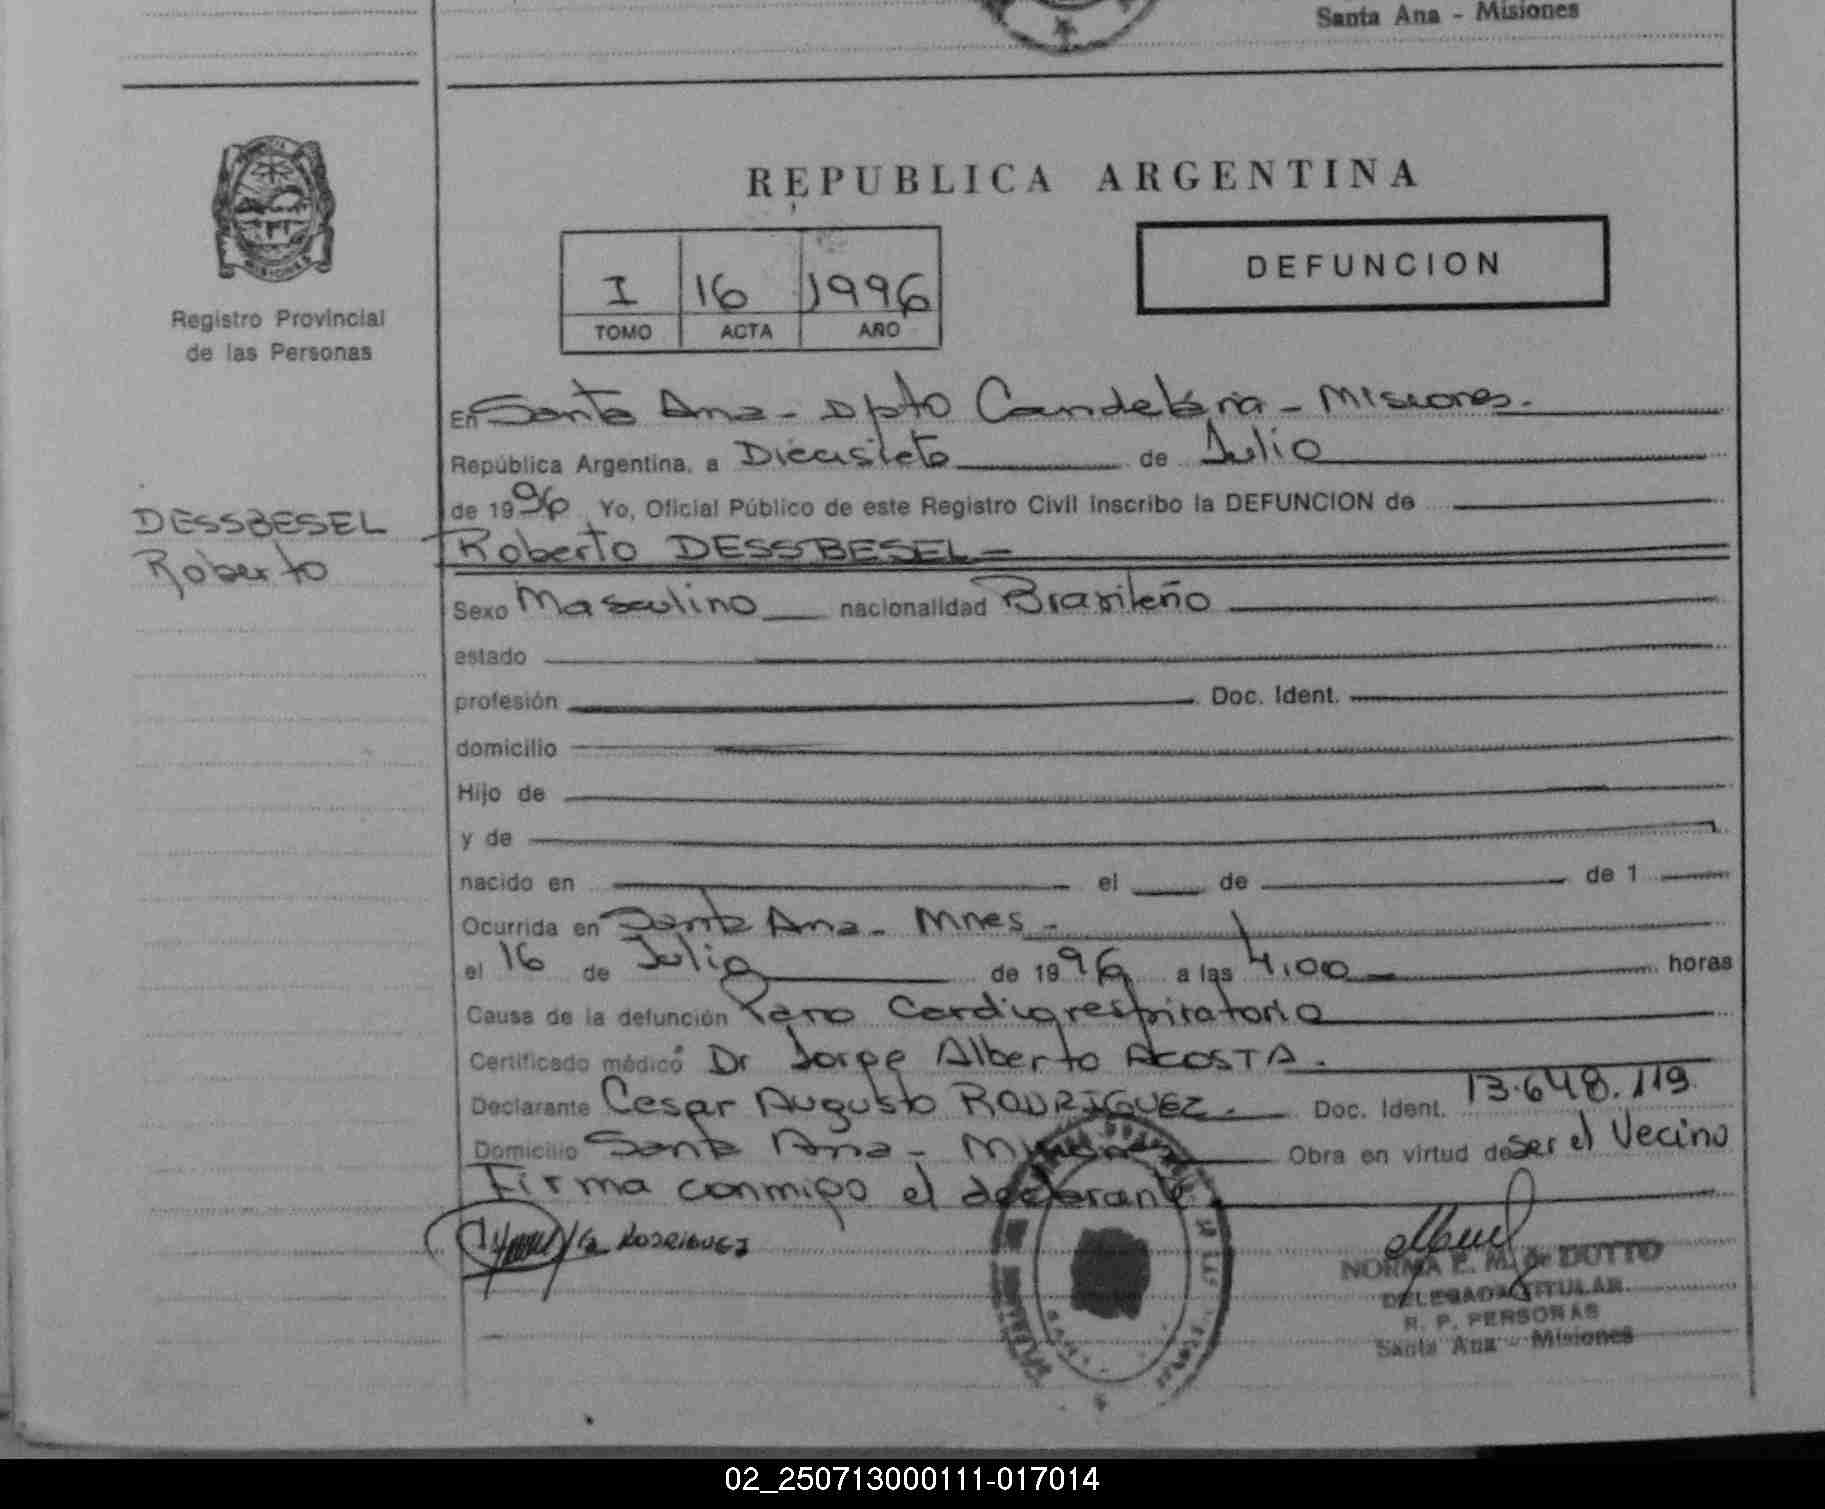 Santa Ana - Misiones
REPUBLICA ARGENTINA
MISIONES
Registro Provincial
de las Personas
I 16 1996
TOMO ACTA AÑO
DEFUNCION
En Santa Ana - Dpto Candelaria - Misiones.
República Argentina, a Diecisiete de Julio
de 1996 Yo, Oficial Público de este Registro Civil inscribo la DEFUNCION de
DESSBESEL
Roberto
Roberto DESSBESEL =
Sexo Masculino nacionalidad Brasileño
estado
profesión Doc. Ident.
domicilio
Hijo de
y de
nacido en el de de 1
Ocurrida en Santa Ana - Mnes -
el 16 de Julio de 1996 a las 4,00 horas
Causa de la defunción Paro Cardiorespiratorio
Certificado médico Dr Jorge Alberto ACOSTA.
Declarante Cesar Augusto RODRIGUEZ. Doc. Ident. 13.648.119
Domicilio Santa Ana - Misiones Obra en virtud de ser el Vecino
Firma conmigo el declarante
RODRIGUEZ
NORMA E. M. de DUTTO
DELEGADA TITULAR
R. P. PERSONAS
Santa Ana - Misiones
02_250713000111-017014